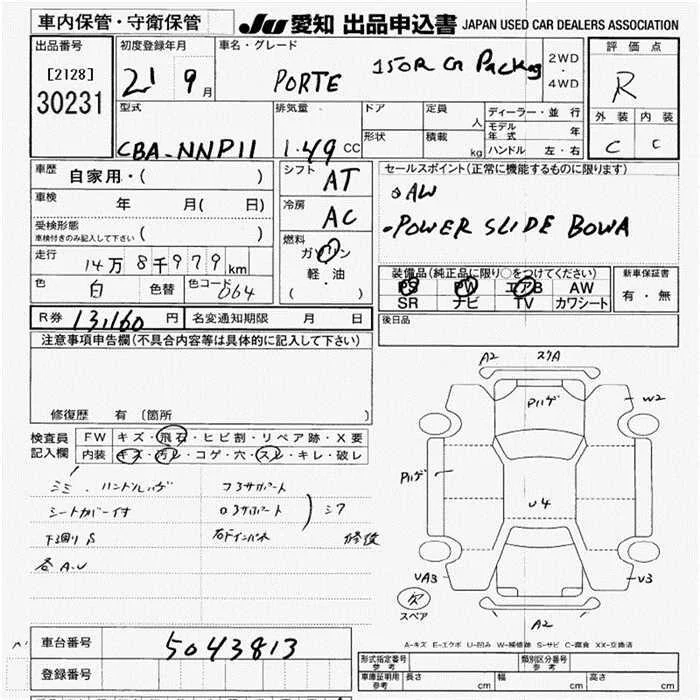 車内保管・守衛保管
JU 愛知 出品申込書 JAPAN USED CAR DEALERS ASSOCIATION
出品番号
[2128]
30231
初度登録年月
21 9月
車名・グレード
PORTE 150R G Package
2WD
・
4WD
評価点
R
外装 内装
C C
型式
CBA-NNP11
排気量
1.49 CC
ドア
定員 人
形状
積載 kg
ディーラー・並行
モデル年式 年
ハンドル 左・右
車歴 自家用・( )
車検 年 月( 日)
受検形態
車検付きのみ記入して下さい ( )
走行 14万8千979km
色 白 色替 色コード 064
シフト AT
冷房 AC
燃料
ガソリン
軽・油
( )
セールスポイント(正常に機能するものに限ります)
AW
POWER SLIDE BOWA
装備品(純正品に限り○をつけてください)
PS PW エアB AW
SR ナビ TV カワシート
新車保証書
有・無
R券 13,160 円 名変通知期限 月 日
後日品
注意事項申告欄(不具合内容等は具体的に記入して下さい)
修復歴 有 〔箇所 〕
検査員
記入欄
FW キズ・飛石・ヒビ割・リペア跡・X要
内装 キズ・汚レ・コゲ・穴・スレ・キレ・破レ
ハンドルハゲ
シートカバー付
下廻りS
各A.U
コアサポート
ロアサポート
右Fインパネ
シワ
修復
A2 スリA
Pハゲ
W2
Pハゲ
U4
UA3
V3
欠
スペア
A2
A-キズ E-エクボ U-凹み W-補修跡 S-サビ C-腐食 XX-交換済
車台番号 5043813
登録番号
形式指定番号
参考
類別区分番号
参考
車庫証明用
参考
長さ cm 幅 cm 高さ cm